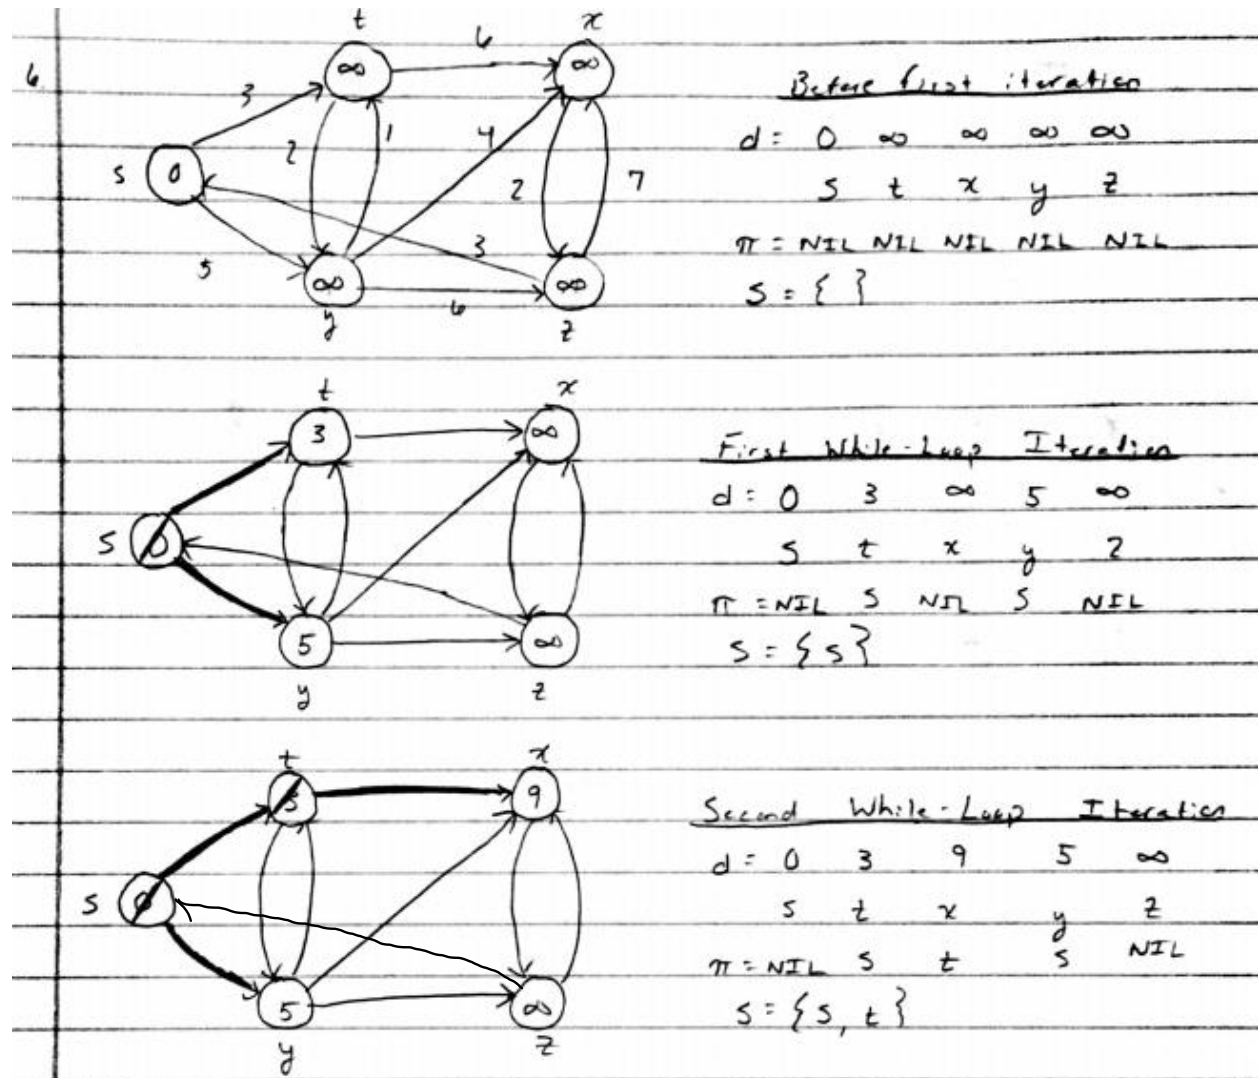 6.
t x
∞ 6 ∞
3
2 1 4
s 0
2 7
3
5
∞ 6 ∞
y z
Before first iteration
d = 0 ∞ ∞ ∞ ∞
s t x y z
π = NIL NIL NIL NIL NIL
S = { }
t x
3 ∞
s 0
5 ∞
y z
First While-Loop Iteration
d = 0 3 ∞ 5 ∞
s t x y z
π = NIL s NIL s NIL
S = { s }
t x
3 9
s 0
5 ∞
y z
Second While-Loop Iteration
d = 0 3 9 5 ∞
s t x y z
π = NIL s t s NIL
S = { s, t }